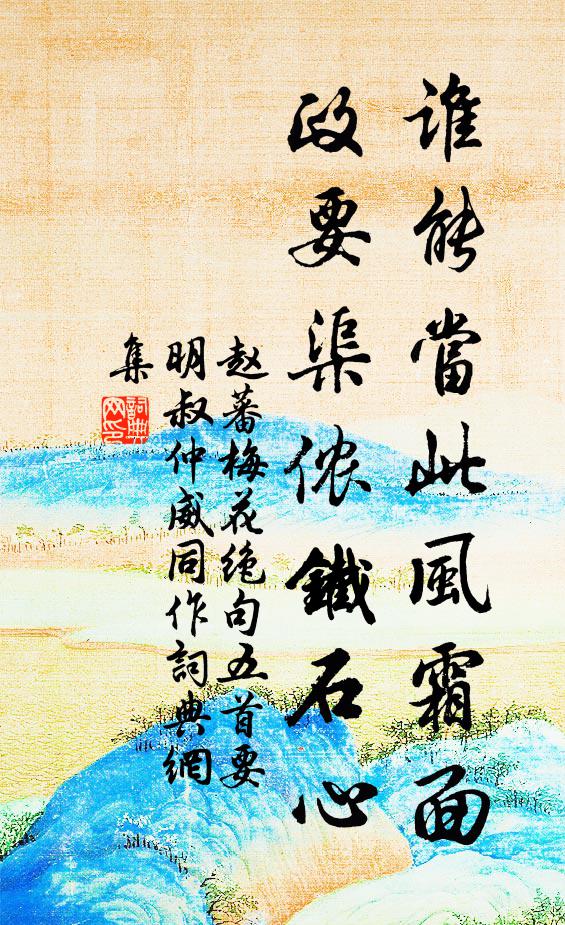 谁能當此風霜面
政要渠侬鐵石心
赵蕃梅花绝句五首要
明叔仲威同作詞典網
集
詞典
网印